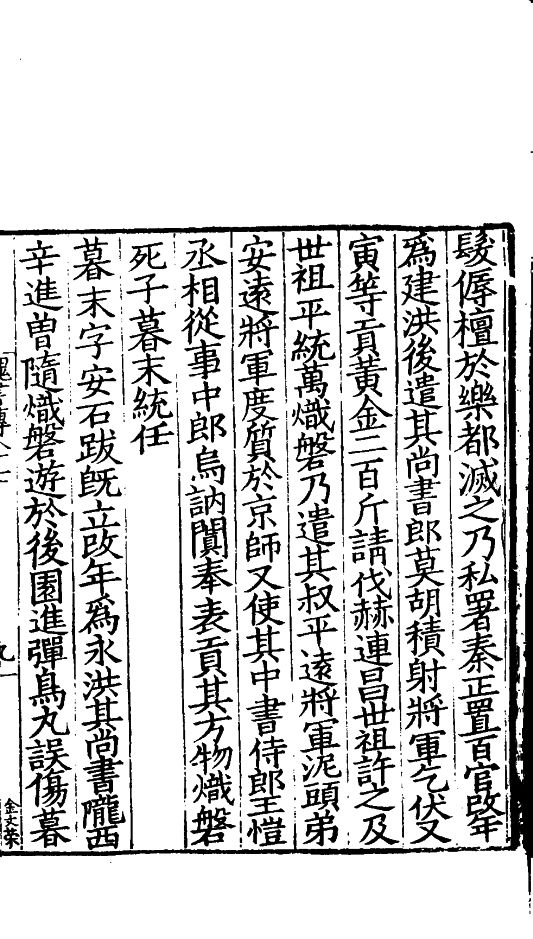 髮傉檀於樂都滅之乃私署秦王置百官改年
爲建洪後遣其尚書郎莫胡積射將軍乞伏又
寅等貢黃金二百斤請伐赫連昌世祖許之及
世祖平統萬熾磐乃遣其叔平遠將軍泥頭弟
安遠將軍度質於京師又使其中書侍郎王愷
丞相從事中郎烏訥闐奉表貢其方物熾磐
死子暮末統任
暮末字安石跋旣立改年爲永洪其尚書隴西
辛進曽隨熾磐遊於後園進彈鳥丸誤傷暮
金文荣